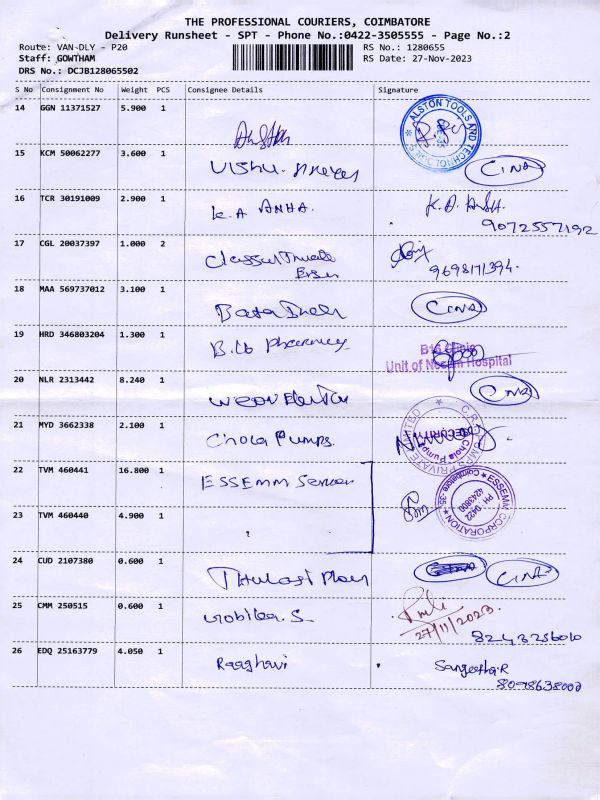 THE PROFESSIONAL COURIERS, COIMBATORE
Delivery Runsheet - SPT - Phone No.:0422-3505555 - Page No.:2
Route: VAN-DLY - P20
RS No.: 1280655
Staff: GOWTHAM
RS Date: 27-Nov-2023
DRS No.: DCJB128065502
S No Consignment No Weight PCS Consignee Details Signature
14 GGN 11371527 5.900 1
ALSTON TOOLS AND TECHNOLOGIES
15 KCM 50062277 3.600 1 Vishu
16 TCR 30191009 2.900 1 K.A ANHA. K.A.
9072557192
17 CGL 20037397 1.000 2
9698171394.
18 MAA 569737012 3.100 1 Bata
19 HRD 346803204 1.300 1 B.16 Pharmacy
B16 Clinic
Unit of Hospital
20 NLR 2313442 8.240 1
21 MYD 3662338 2.100 1 Chola Pumps.
PRIVATE LIMITED
Chola Pumps
SECURITY
22 TVM 460441 16.800 1 ESSEMM
ESSEMM CORPORATION
Coimbatore-35
PH: 0422
4243800
23 TVM 460440 4.900 1
24 CUD 2107380 0.600 1 Thulasi
25 CMM 250515 0.600 1
27/11/2023
8243256010
26 EDQ 25163779 4.050 1 Raaghavi Sangeetha.R
8098638002